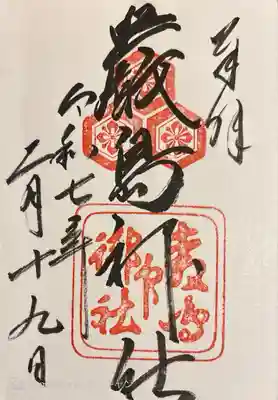 奉拝
厳島神社
令和七年
二月十九日
厳島
御神社